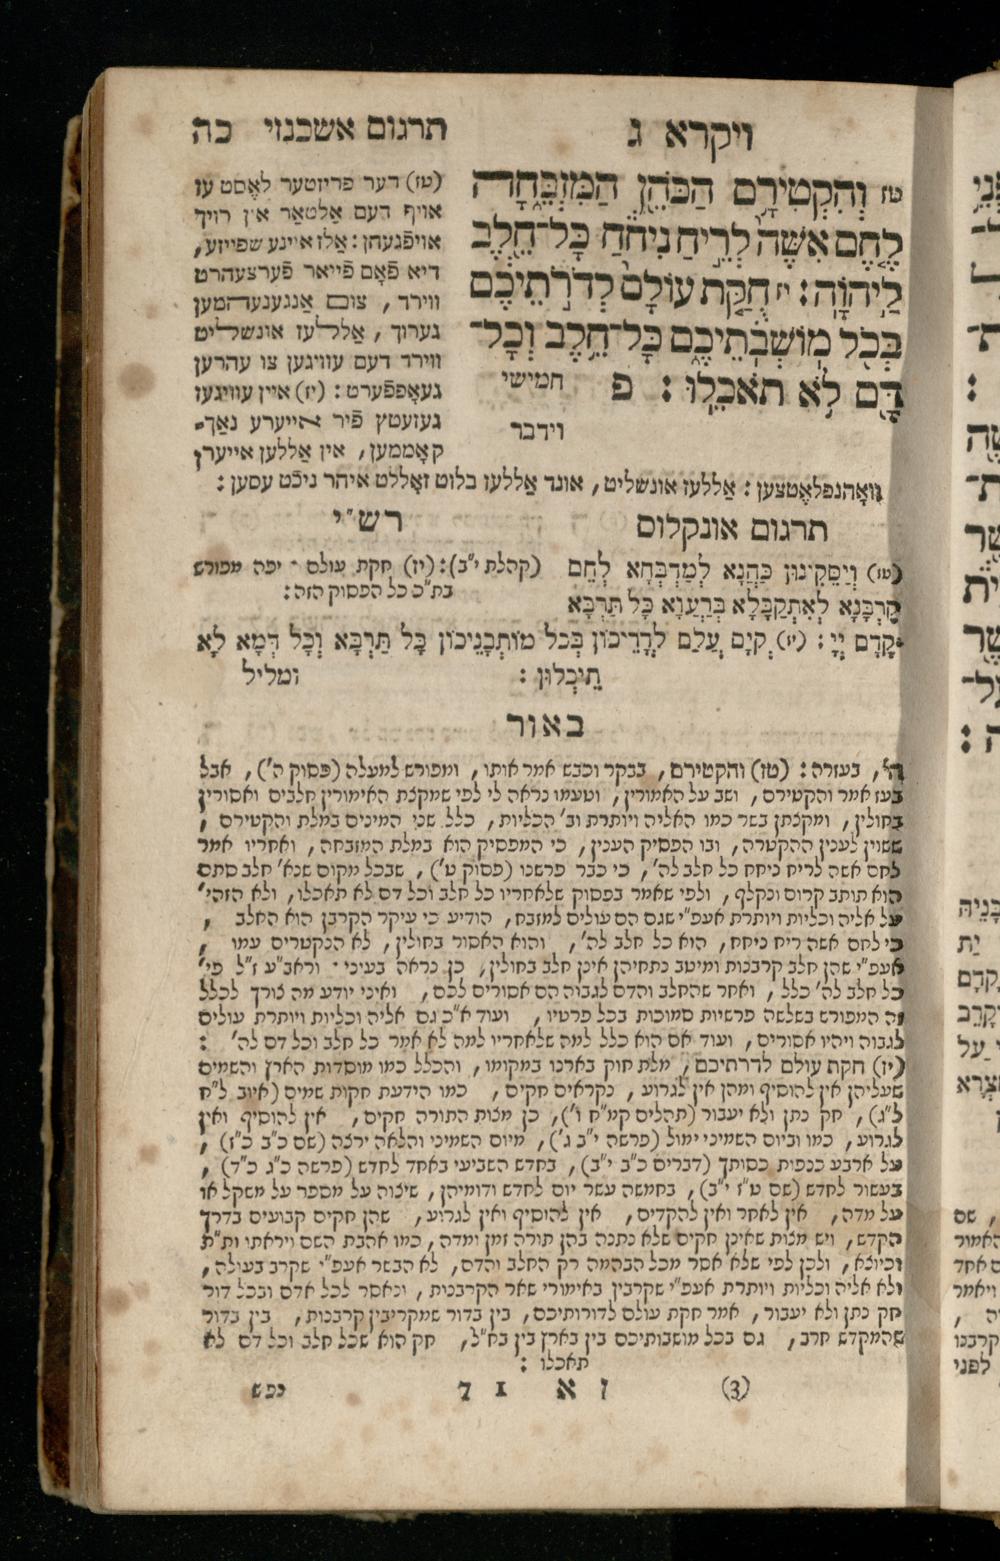 ויקרא ג
תרגום אשכנזי כה
טז וְהִקְטִירָ֥ם הַכֹּהֵ֖ן הַמִּזְבֵּ֑חָה
לֶ֤חֶם אִשֶּׁה֙ לְרֵ֣יחַ נִיחֹ֔חַ כָּל־חֵ֖לֶב
לַיהוָֹֽה׃ יז חֻקַּ֤ת עוֹלָם֙ לְדֹרֹ֣תֵיכֶ֔ם
בְּכֹ֖ל מֽוֹשְׁבֹֽתֵיכֶ֑ם כָּל־חֵ֥לֶב וְכָל־
דָּ֖ם לֹ֥א תֹאכֵֽלוּ׃ פ חמישי
וידבר
(טז) דער פריזטער לאֶסט עז
אויף דעם אַלטאַר אין רויך
אויפֿגעהן: אַלז איינע שפייזע,
דיא פֿאָם פֿייאר פֿערצעהרט
ווירד, צום אַנגענעהמען
גערוך, אַללעז אונשליט
ווירד דעם עוויגען צו עהרען
געאָפפֿערט: (יז) איין עוויגעז
געזעטץ פֿיר אייערע נאָך-
קאָממען, אין אַללען אייערן
וואָהנפלאֶטצען: אַללעז אונשליט, אונד אַללעז בלוט זאָללט איהר ניכֿט עסען:
תרגום אונקלוס
(טז) וְיַסֵּקִינוּן כַּהֲנָא לְמַדְבְּחָא לְחֵם
קֻרְבָּנָא לְאִתְקַבָּלָא בְּרַעֲוָא כָּל תַּרְבָּא
קֳדָם יְיָ: (יז) קְיַם עֲלַם לְדָרֵיכוֹן בְּכֹל מוֹתְבָנֵיכוֹן כָּל תַּרְבָּא וְכָל דְּמָא לָא
תֵיכְלוּן: ומליל
רש"י
(קהלת י"ב): (יז) חקת עולם ׳ יפה מפורש
בת"כ כל הפסוק הזה:
באור
ה', בעזרה: (טז) והקטירם, בבקר וכבש אמר אותו, ומפורש למעלה (פסוק ה'), אבל
בעז אמר והקטירם, ושב על האמורין, וטעמו נראה לי לפי שמקצת האימורין חלבים ואסורין
בחולין, ומקצתן בשר כמו האליה ויותרת וב' הכליות, כלל שני המינים במלת והקטירם,
ששוין לענין ההקטרה, ובו הפסיק הענין, כי המפסיק הוא במלת המזבחה, ואחריו אמר
לחם אשה לריח ניחח כל חלב לה', כי כבר פרשנו (פסוק ט'), שבכל מקום שנא' חלב סתם
הוא תותב קרום ונקלף, ולפי שאמר בפסוק שלאחריו כל חלב וכל דם לא תאכלו, ולא הזהי'
על אליה וכליות ויותרת אעפ"י שגם הם עולים למזבח, הודיע כי עיקר הקרבן הוא החלב,
כי לחם אשה ריח ניחח, הוא כל חלב לה', והוא האסור בחולין, לא הנקטרים עמו,
אעפ"י שהן חלב קרבנות ומיטב נתחיהן אינן חלב בחולין, כן נראה בעיני ׳ וראב"ע ז"ל פי'
כל חלב לה' כלל, ואחר שהחלב והדם לגבוה הם אסורים לכם, ואיני יודע מה צורך לכלל
זה המפורש בשלשה פרשיות סמוכות בכל פרטיו, ועוד א"כ גם אליה וכליות ויותרת עולים
לגבוה ויהיו אסורים, ועוד אם הוא כלל למה שלאחריו למה לא אמר כל חלב וכל דם לה':
(יז) חקת עולם לדרתיכם, מלת חוק בארנו במקומו, והכלל כמו מוסדות הארץ והשמים
שעליהן אין להוסיף ומהן אין לגרוע, נקראים חקים, כמו הידעת חקות שמים (איוב ל"ח
ל"ג), חק נתן ולא יעבור (תהלים קמ"ח ו'), כן מצות התורה חקים, אין להוסיף ואין
לגרוע, כמו וביום השמיני ימול (פרשה י"ב ג'), מיום השמיני והלאה ירצה (שם כ"ב כ"ז),
על ארבע כנפות כסותך (דברים כ"ב י"ב), בחדש השביעי באחד לחדש (פרשה כ"ג כ"ד),
בעשור לחדש (שם ט"ז י"ב), בחמשה עשר יום לחדש ודומיהן, שיצוה על מספר על משקל או
על מדה, אין לאחר ואין להקדים, אין להוסיף ואין לגרוע, שהן חקים קבועים בדרך
הקדש, ויש מצות שאינן חקים שלא נתנה בהן תורה זמן ומדה, כמו אהבת השם ויראתו ות"ת
וכיוצא, ולכן לפי שלא אסר מכל הבהמה רק החלב והדם, לא הבשר אעפ"י שקרב בעולה,
ולא אליה וכליות ויותרת אעפ"י שקרבין באימורי שאר הקרבנות, ונאסר לכל אדם ובכל דור
חק נתן ולא יעבור, אמר חקת עולם לדורותיכם, בין בדור שמקריבין קרבנות, בין בדור
שהמקדש חרב, גם בכל מושבותיכם בין בארץ בין בח"ל, חק הוא שכל חלב וכל דם לא
תאכלו:
(3) ז א 1 ד נפש